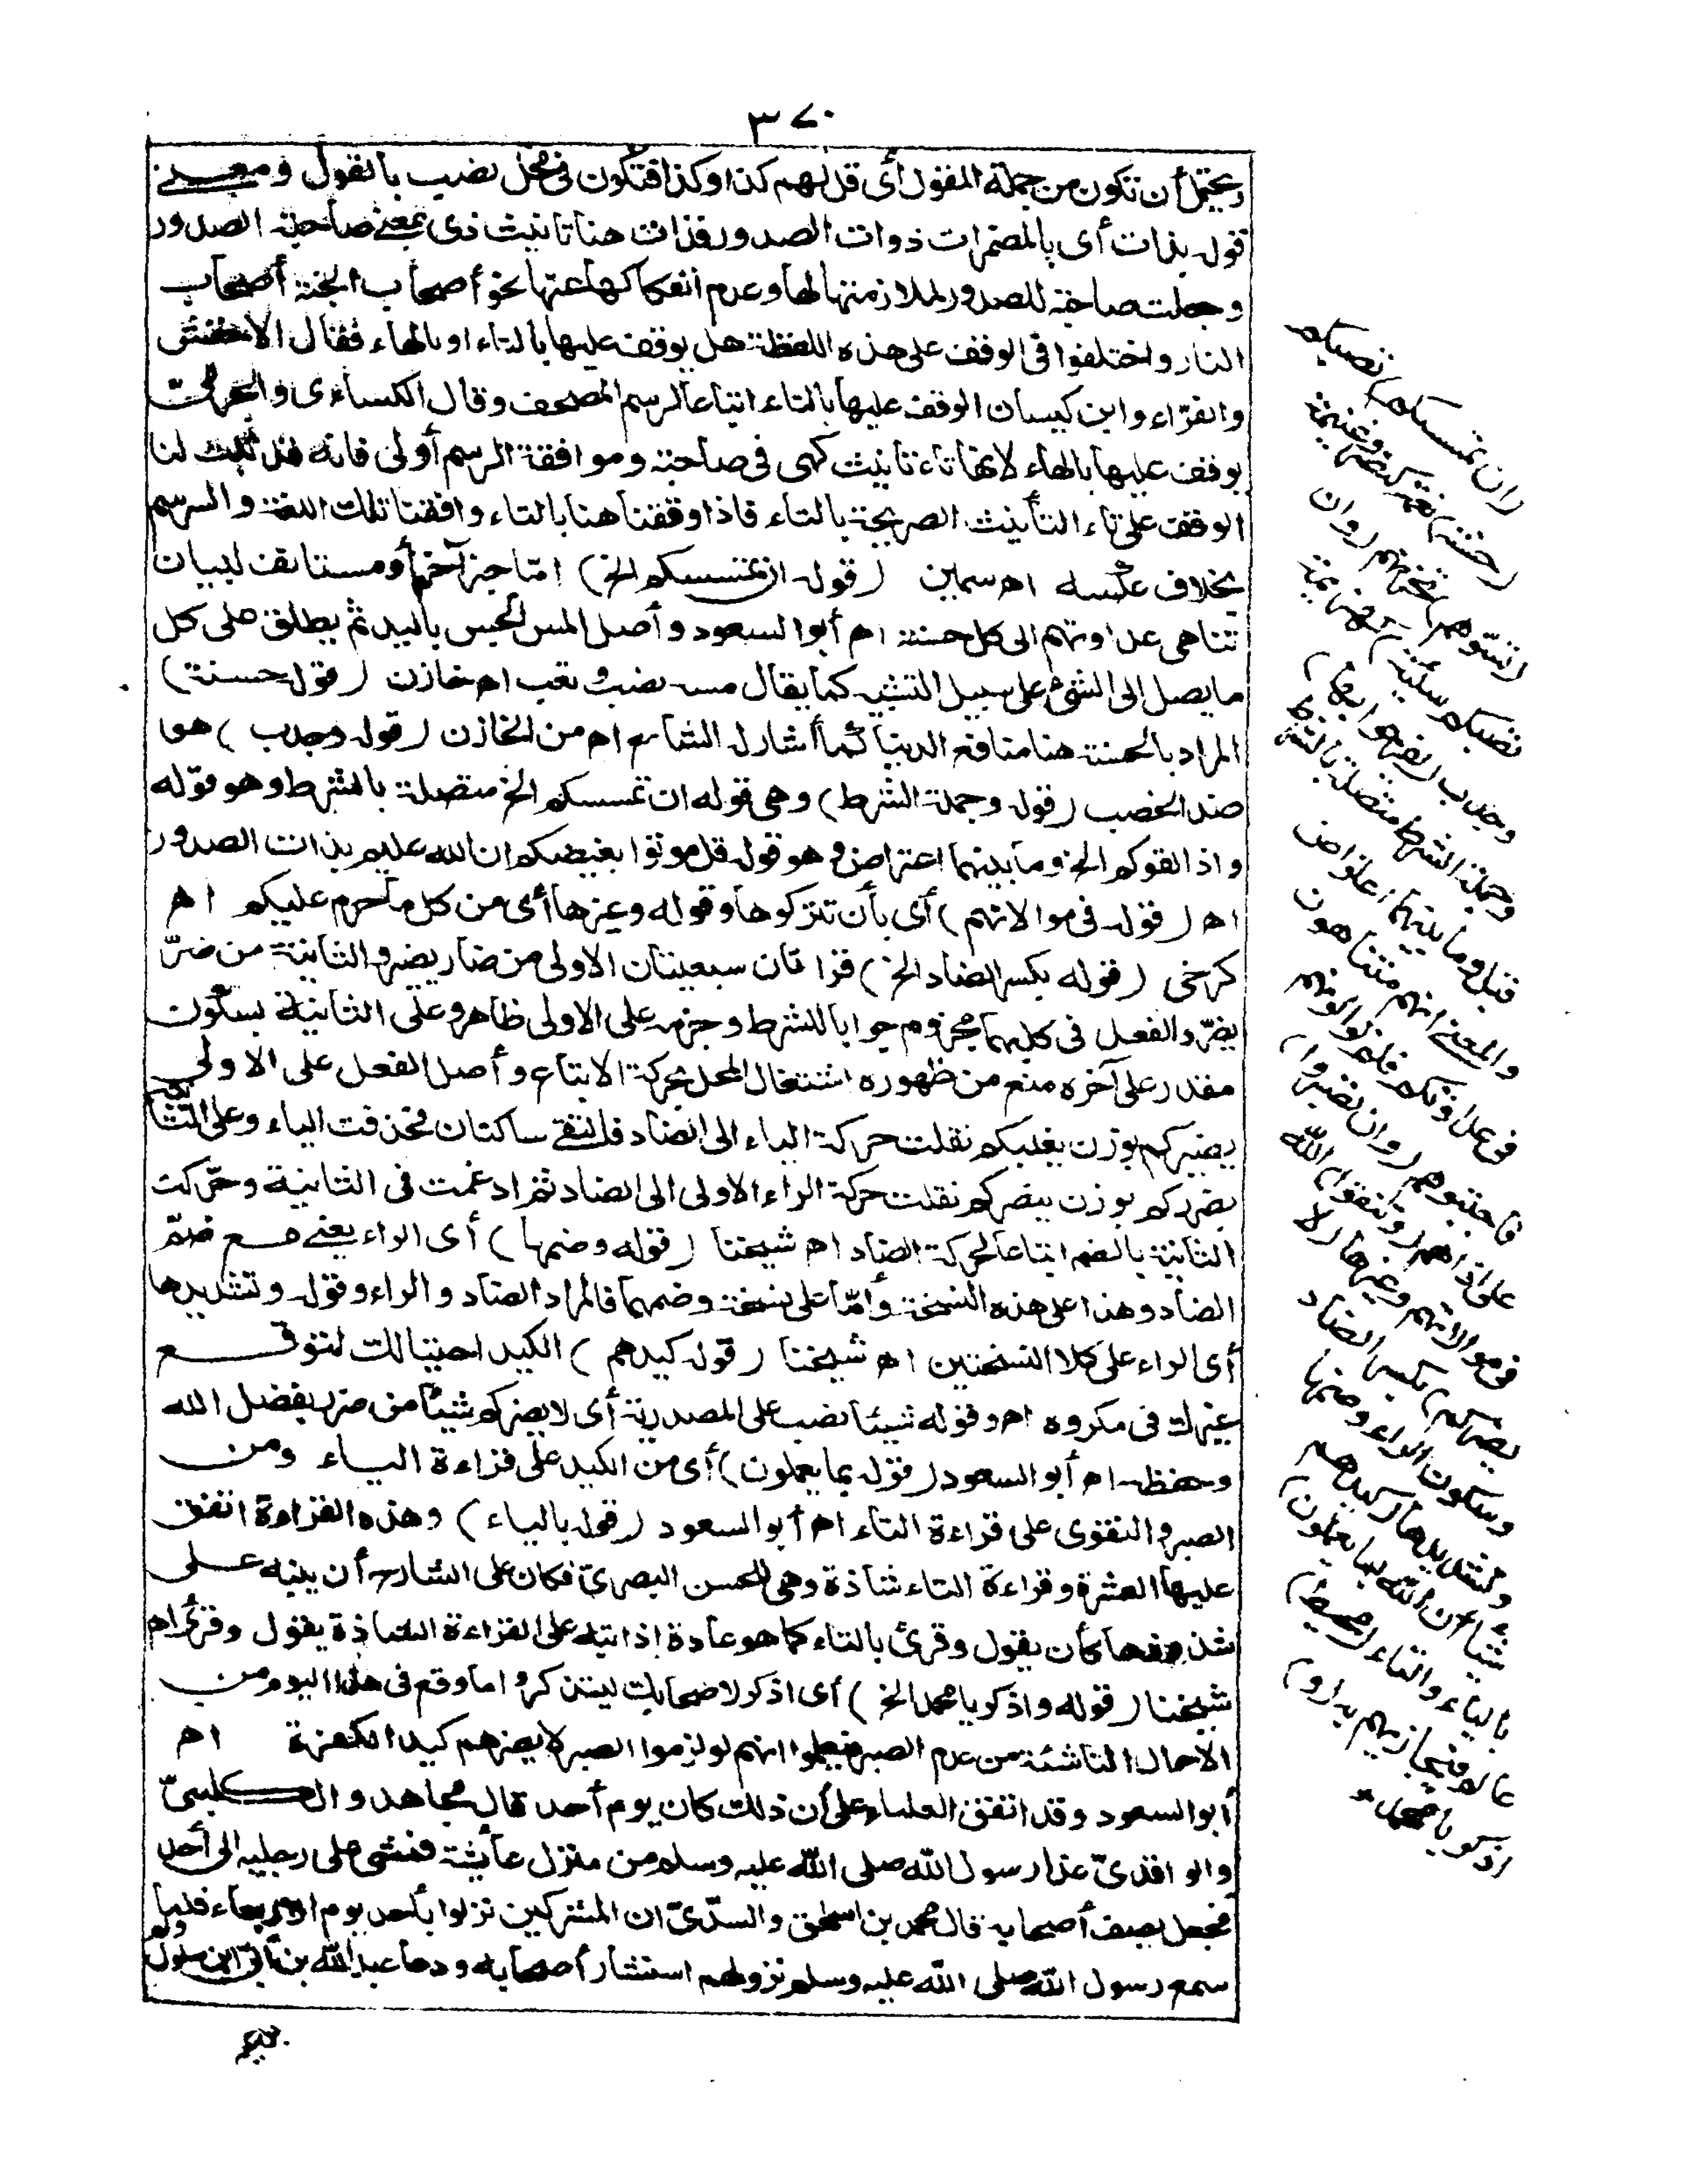 ٣٧٠
ويحتمل أن تكون من جملة المقول أى قل لهم كذا وكذا فتكون فى محل نصب بالقول ومعنى
قوله بذات أى بالمضمرات ذوات الصدور فذات هنا تانيث ذى بمعنى صاحبة الصدور
وجعلت صاحبة للصدور لملازمتها لها وعدم انفكاكها عنها نحو أصحاب الجنة أصحاب
النار واختلفوا فى الوقف على هذه اللفظة هل يوقف عليها بالتاء او بالهاء فقال الاخفش
والفرّاء وابن كيسان الوقف عليها بالتاء اتباعا لرسم المصحف وقال الكساءى والجرمىّ
يوقف عليها بالهاء لانها تاء تانيث كهى فى صاحبة وموافقة الرسم أولى فانه قد ثبت لنا
الوقف على تاء التأنيث الصريحة بالتاء فاذا وقفنا هنا بالتاء وافقنا تلك اللغة والرسم
بخلاف عكسه اه سمين (قوله ان تمسسكم الخ) امّا خبر آخر أو مستانف لبيان
تناهى عداوتهم الى كل حسنة اه أبو السعود وأصل المس الحس باليد ثم يطلق على كل
ما يصل الى الشئ على سبيل التشبيه كما يقال مسه نصب وتعب اه خازن (قوله حسنة)
المراد بالحسنة هنا منافع الدنيا كما أشار له الشارح اه من الخازن (قوله وجدب) هو
ضد الخصب (قوله وجملة الشرط) وهى قوله ان تمسسكم الخ متصلة بالشرط وهو قوله
واذا لقوكم الخ وما بينهما اعتراض وهو قوله قل موتوا بغيظكم ان الله عليم بذات الصدور
اه (قوله فى موالاتهم) أى بأن تتركوها وقوله وغيرها أى من كل ما حرم عليكم اه
كرخى (قوله بكسر الضاد الخ) قراءتان سبعيتان الاولى من ضار يضير والثانية من ضرّ
يضرّ والفعل فى كليهما مجزوم جوابا للشرط وجزمه على الاولى ظاهر وعلى الثانية بسكون
مقدر على آخره منع من ظهوره اشتغال المحل بحركة الاتباع وأصل الفعل على الاولى
يضيركم بوزن يغلبكم نقلت حركة الياء الى الضاد فالتقى ساكنان فحذفت الياء وعلى الثانية
يضرركم بوزن ينصركم نقلت حركة الراء الاولى الى الضاد ثم ادغمت فى الثانية وحرّكت
الثانية بالضم اتباعا لحركة الضاد اه شيخنا (قوله وضمها) أى الراء يعنى مع ضمّ
الضاد وهذا على هذه النسخة وأمّا على نسخة وضمهما فالمراد الضاد والراء وقوله وتشديدها
أى الراء على كلا النسختين اه شيخنا (قوله كيدهم) الكيد احتيالك لتوقع
غيرك فى مكروه اه وقوله شيئا نصب على المصدرية أى لا يضركم شيئا من ضرر بفضل الله
وحفظه اه أبو السعود (قوله بما يعملون) أى من الكيد على قراءة الياء ومن
الصبر والتقوى على قراءة التاء اه أبو السعود (قوله بالياء) وهذه القراءة اتفق
عليها العشرة وقراءة التاء شاذة وهى للحسن البصرىّ فكان على الشارح أن ينبه على
شذوذها كأن يقول وقرئ بالتاء كما هو عادة إذا نبه على القراءة الشاذة يقول وقرئ اه
شيخنا (قوله واذكر يا محمد الخ) أى اذكر لاصحابك ليتذكروا ما وقع فى هذا اليوم من
الاحوال الناشئة من عدم الصبر فيعلموا انهم لو لزموا الصبر لا يضرهم كيد الكفرة اه
أبو السعود وقد اتفق العلماء على أن ذلك كان يوم أحد قال مجاهد والكلبىّ
والواقدىّ غدا رسول الله صلى الله عليه وسلم من منزل عائشة فمشى على رجليه الى أحد
فجعل يصف أصحابه قال محمد بن اسحق والسدّىّ ان المشركين نزلوا بأحد يوم الاربعاء فلما
سمع رسول الله صلى الله عليه وسلم نزولهم استشار أصحابه ودعا عبد الله بن أبىّ ابن سلول
ولم
(ان تمسسكم) تصبكم
(حسنة) نعمة كنصر وغنيمة
(تسؤهم) تحزنهم (وان
تصبكم سيئة) كهزيمة
وجدب (يفرحوا بها)
وجملة الشرط متصلة بالشرط
قبل وما بينهما اعتراض
والمعنى انهم متناهون
فى عداوتكم فلم توالونهم
فاجتنبوهم (وان تصبروا)
على اذاهم (وتتقوا) الله
فى موالاتهم وغيرها (لا
يضركم) بكسر الضاد
وسكون الراء وضمها
وتشديدها (كيدهم
شيأ ان الله بما يعملون)
بالياء والتاء (محيط)
عالم فيجازيهم به (و)
اذكر يا محمد